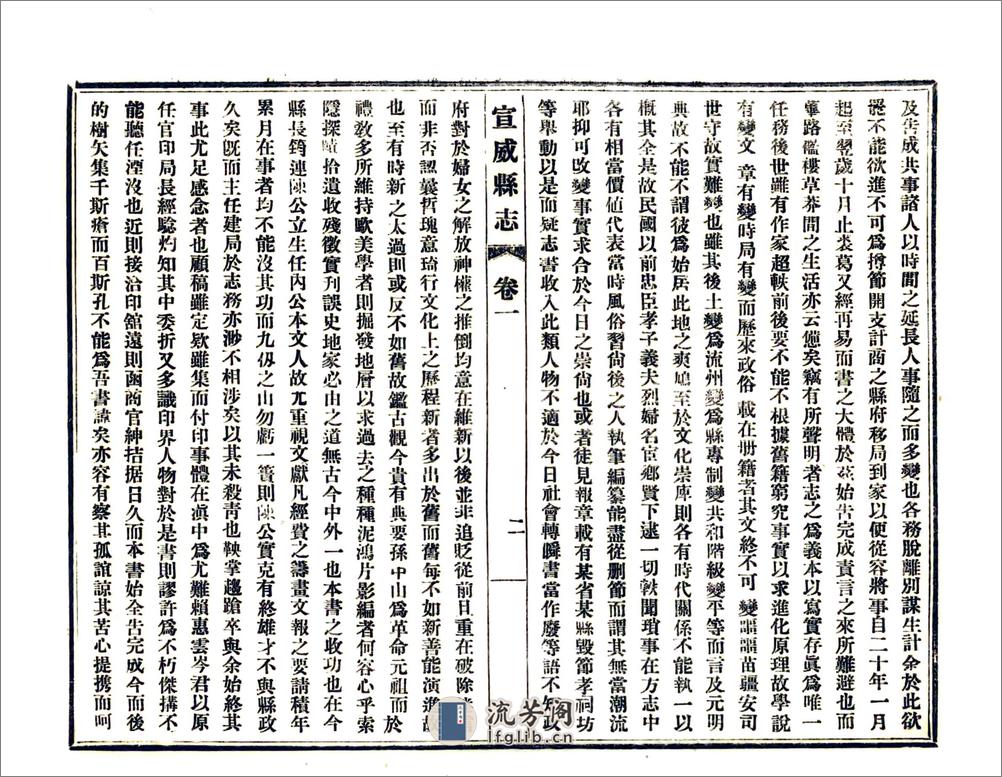 及告成共事諸人以時間之延長人事隨之而多變也各務脫離別謀生計余於此欲
罷不能欲進不可爲撙節開支計商之縣府移局到家以便從容將事自二十年一月
起至翌歲十月止裘葛又經再易而書之大體於茲始告完成責言之來所難避也而
篳路襤褸草莽間之生活亦云憊矣竊有所聲明者志之爲義本以寫實存眞爲唯一
任務後世雖有作家超軼前後要不能不根據舊籍窮究事實以求進化原理故學說
有變文章有變時局有變而歷來政俗載在册籍者其文終不可變謳謳苗疆安司
世守故實難變也雖其後土變爲流州變爲縣專制變共和階級變平等而言及元明
典故不能不謂彼爲始居此地之爽鳩至於文化崇庳則各有時代關係不能執一以
概其全是故民國以前忠臣孝子義夫烈婦名宦鄉賢下逮一切軼聞瑣事在方志中
各有相當價値代表當時風俗習尙後之人執筆編纂能盡從删節而謂其無當潮流
耶抑可改變事實求合於今日之崇尙也或者徒見報章載有某省某縣毀節孝祠坊
等舉動以是而疑志書收入此類人物不適於今日社會轉瞬書當作廢等語不知政
宣威縣志 卷一 二
府對於婦女之解放神權之推倒均意在維新以後並非追貶從前日重在破除
而非否認曩哲瑰意琦行文化上之歷程新者多出於舊而舊每不如新善能演進故
也至有時新之太過則或反不如舊故鑑古觀今貴有典要孫中山爲革命元祖而於
禮教多所維持歐美學者則掘發地層以求過去之種種泥鴻片影編者何容心乎索
隱探賾拾遺收殘徵實刋誤史地家必由之道無古今中外一也本書之收功也在今
縣長筠連陳公立生任內公本文人故尤重視文獻凡經費之籌畫文報之要請積年
累月在事者均不能沒其功而九仭之山勿虧一簣則陳公實克有終雄才不與縣政
久矣旣而主任建局於志務亦渺不相涉矣以其未殺靑也鞅掌趨蹌卒與余始終其
事此尤足感念者也顧稿雖定欵雖集而付印事體在滇中爲尤難賴惠雲岑君以原
任官印局長經驗灼知其中委折又多識印界人物對於是書則謬許爲不朽傑搆不
能聽任湮沒也近則接洽印舘遠則函商官紳拮据日久而本書始全告完成今而後
的樹矢集千斯瘡而百斯孔不能爲吾書諱矣亦容有察其孤誼諒其苦心提携而呵
流芳阁
lfglib.cn